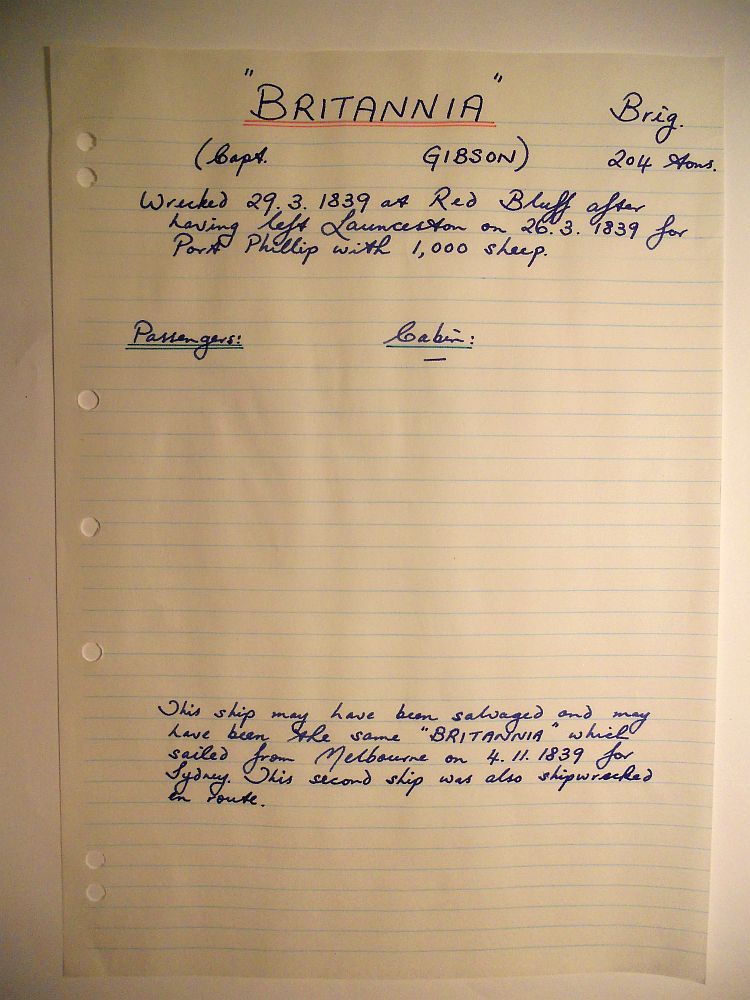 "BRITANNIA" Brig.
(Capt. GIBSON) 204 tons.
Wrecked 29.3.1839 at Red Bluff after
having left Launceston on 26.3.1839 for
Port Phillip with 1,000 sheep.
Passengers: Cabin:
—
This ship may have been salvaged and may
have been the same "BRITANNIA" which
sailed from Melbourne on 4.11.1839 for
Sydney. This second ship was also shipwrecked
en route.